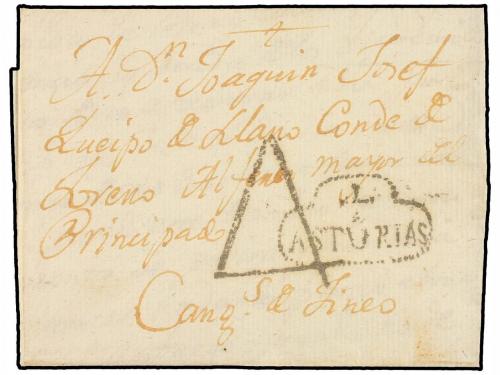 A. Dn. Joaquin Josef
Queipo de Llano Conde de
Toreno Alferez mayor del
Principado
Cangs. de Tineo
A
L.
ASTURIAS